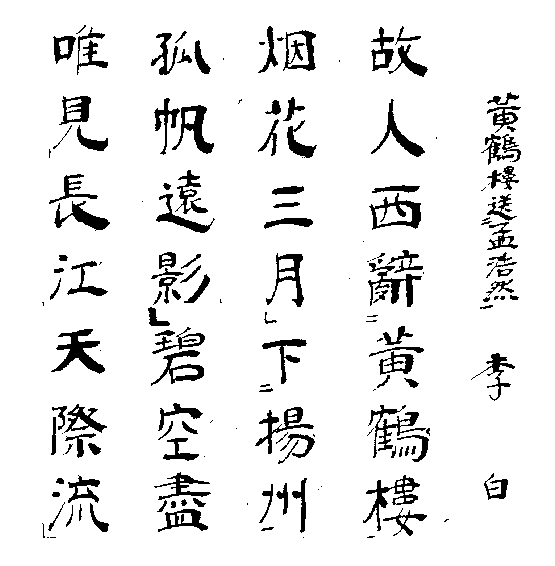 黄鶴樓送孟浩然 李白
故人西辭黄鶴樓
烟花三月下揚州
孤帆遠影碧空盡
唯見長江天際流